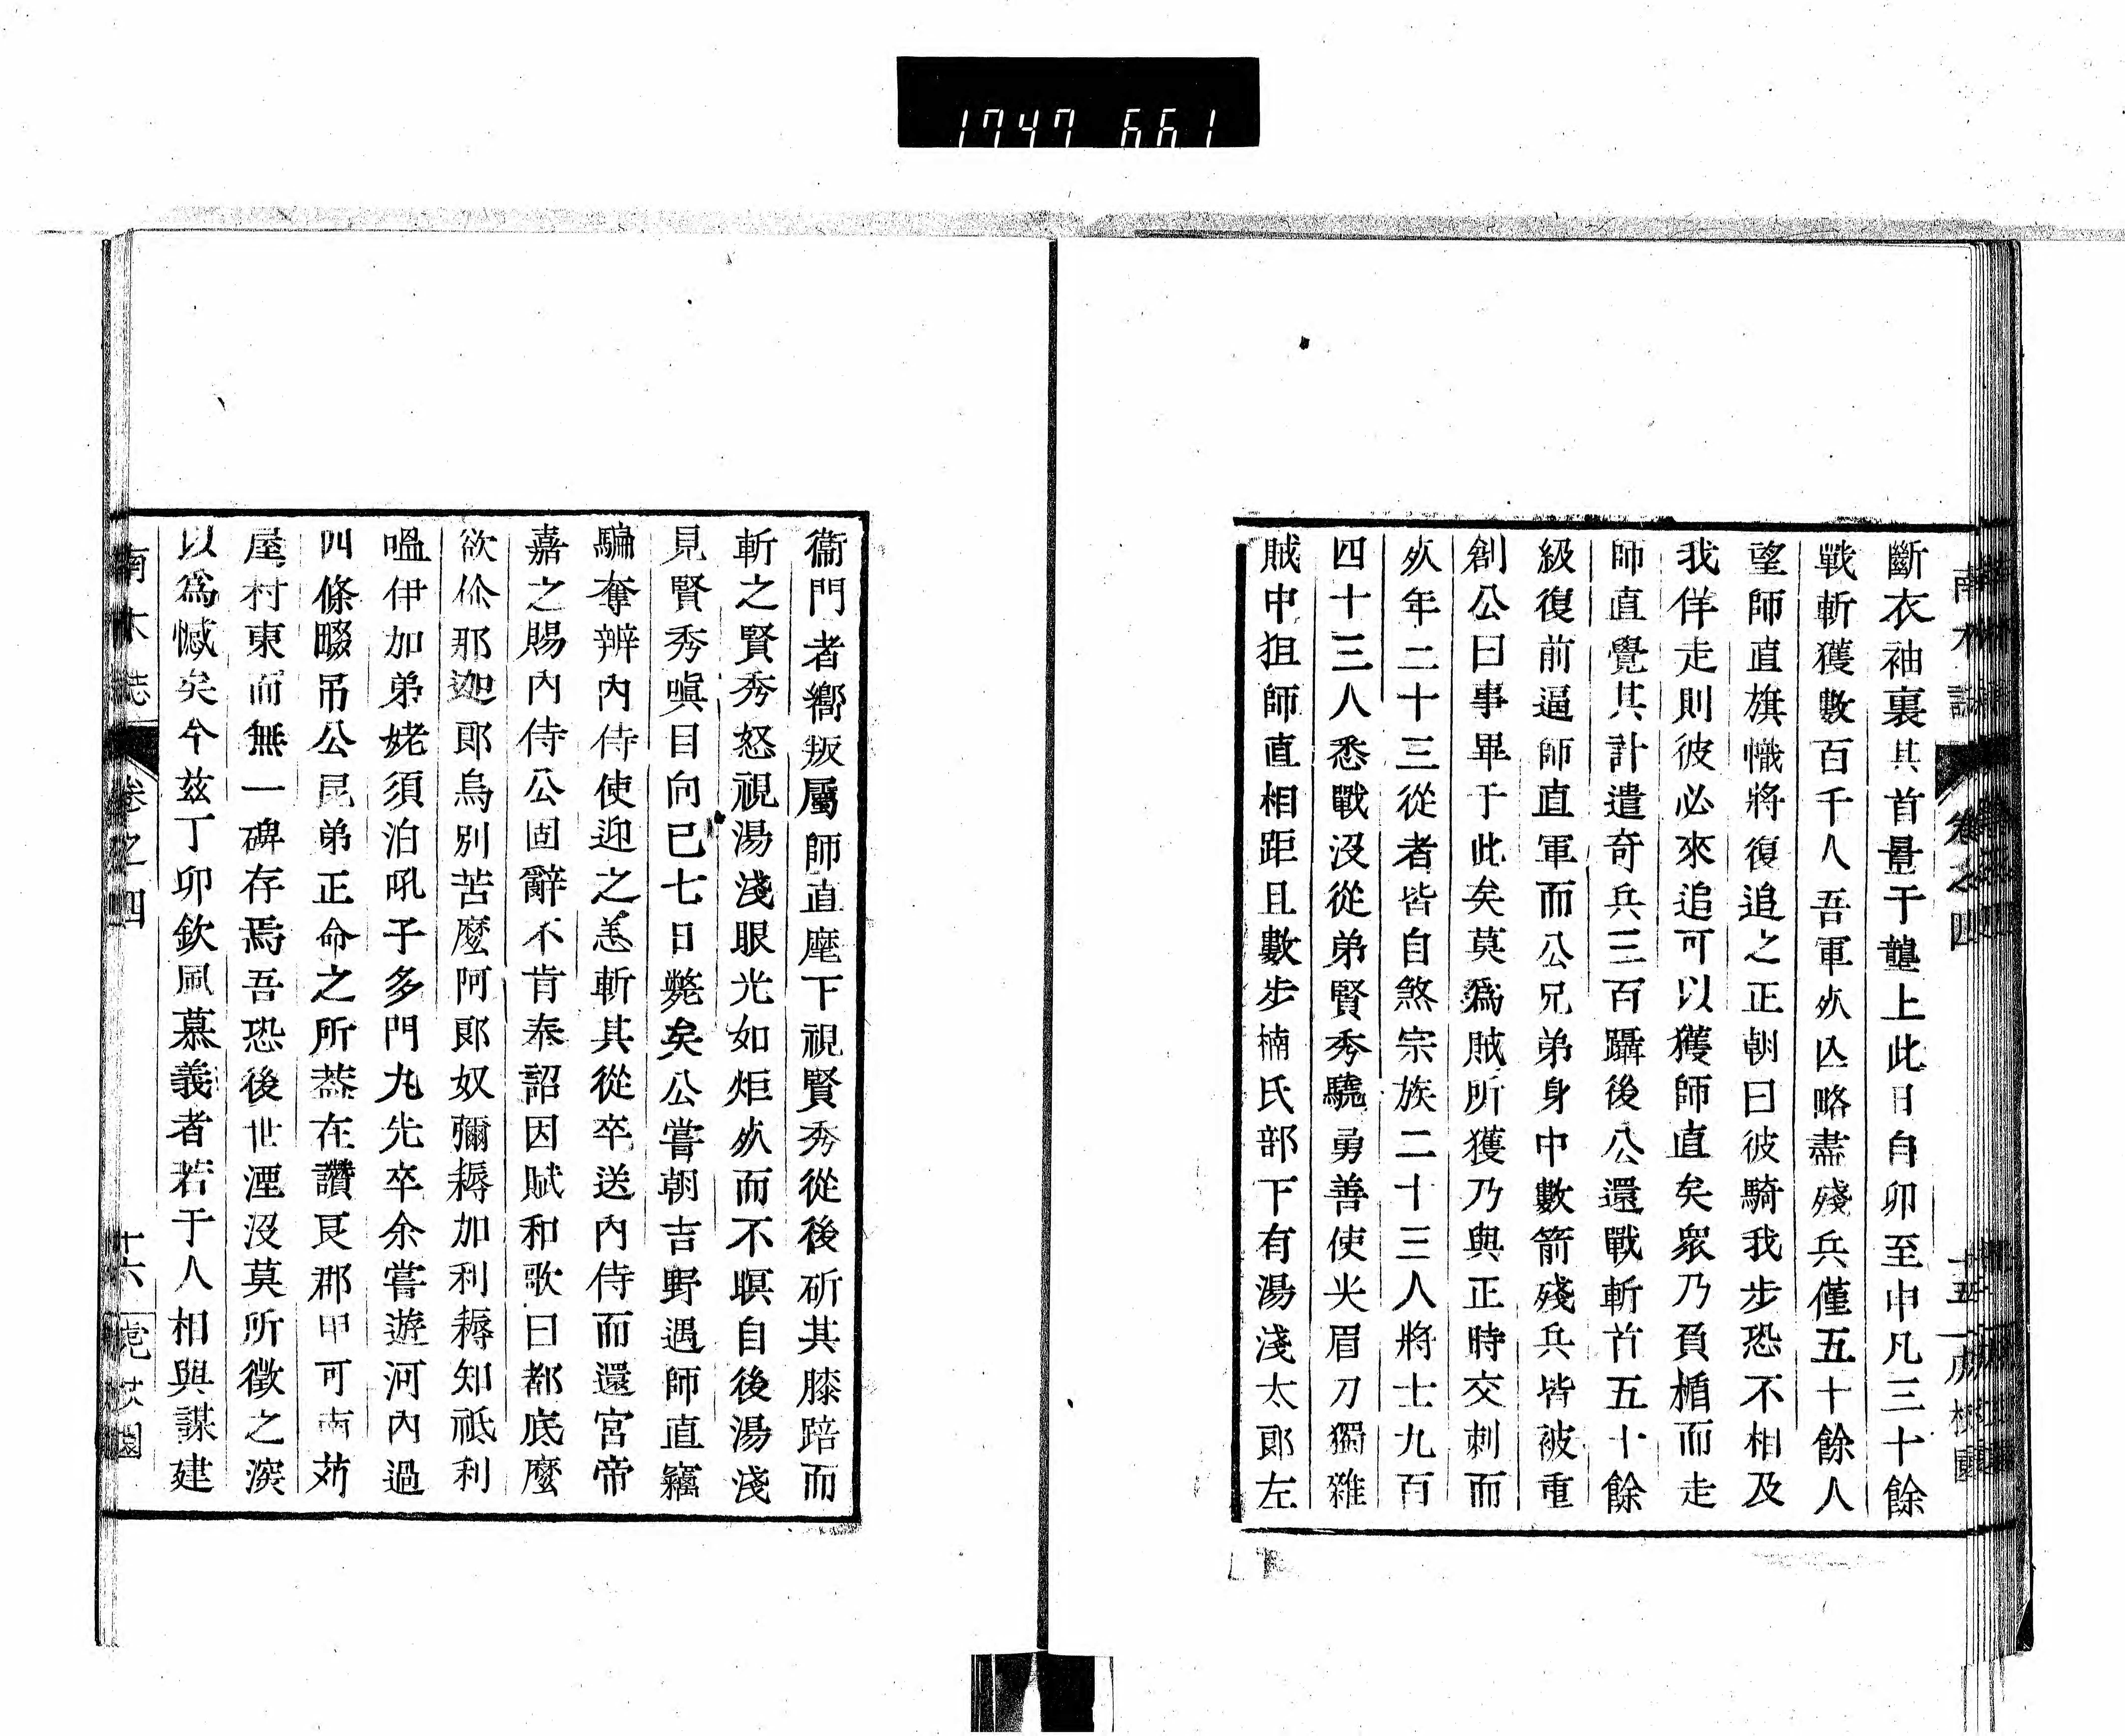 1747 661
南木誌
卷之四
十五
斷衣袖裏其首畳于壟上此日自卯至申凡三十餘
戰斬獲數百千人吾軍㱙亾略盡殘兵僅五十餘人
望師直旗幟將復追之正朝曰彼騎我步恐不相及
我佯走則彼必來追可以獲師直矣衆乃負楯而走
師直覺其計遣奇兵三百躡後公還戰斬首五十餘
級復前逼師直軍而公兄弟身中數箭殘兵皆被重
創公曰事畢于此矣莫爲賊所獲乃與正時交刺而
㱙年二十三從者皆自煞宗族二十三人將士九百
四十三人悉戰没從弟賢秀驍勇善使尖眉刀獨雜
賊中狙師直相距且數步楠氏部下有湯淺太郎左
衞門者嚮叛屬師直麾下視賢秀從後斫其膝踣而
斬之賢秀怒視湯淺眼光如炬㱙而不瞑自後湯淺
見賢秀嗔目向已七日斃矣公嘗朝吉野遇師直竊
騙奪辨内侍使迎之恙斬其從卒送内侍而還宮帝
嘉之賜内侍公固辭不肯奉詔因賦和歌曰都底麼
欲伱那迦郎烏別苦麼阿郎奴彌耨加利耨知祗利
嗢伊加弟姥須泊吼子多門丸先卒余嘗遊河内過
四條畷吊公昆弟正命之所葢在讚良郡甲可南苅
屋村東而無一碑存焉吾恐後世湮没莫所徵之淚
以爲憾矣今玆丁卯欽風慕義者若于人相與謀建
南木誌
卷之四
十六